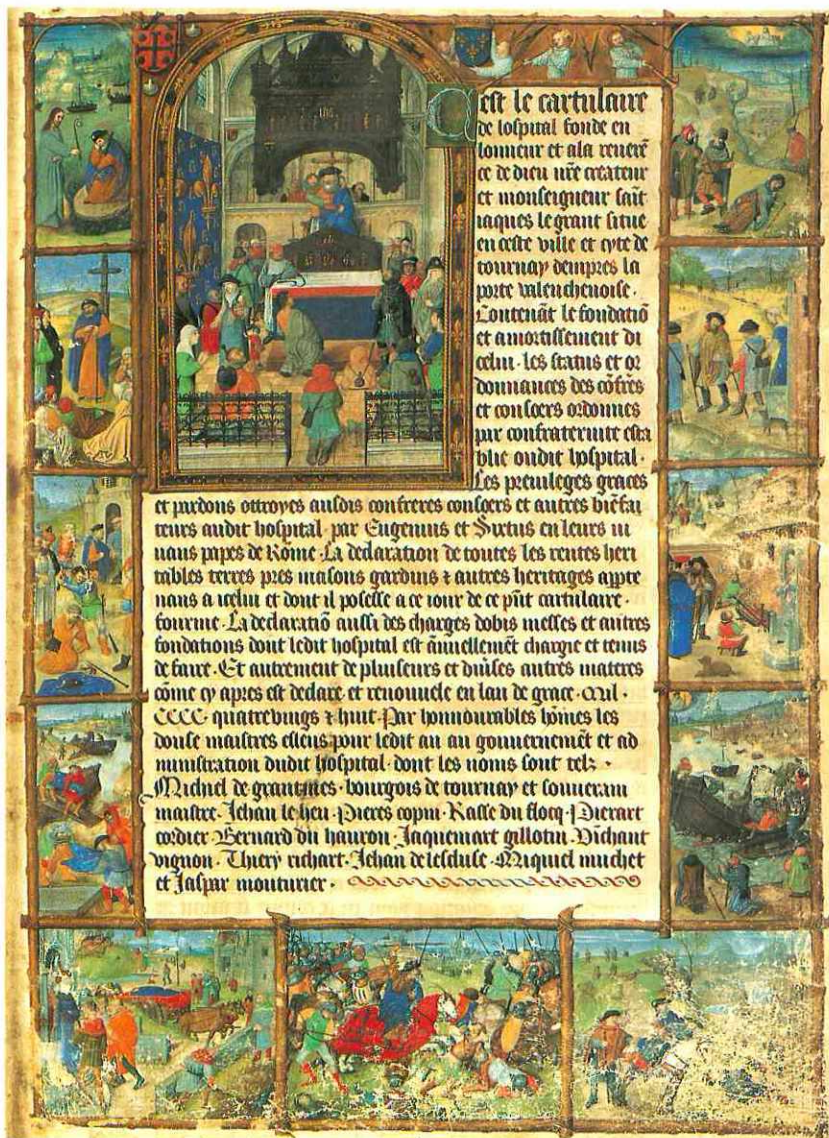 Cest le cartulaire
de lospital fonde en
lonneur et ala reuerē
ce de dieu nr̄e createur
et monseigneur saīt
iaques le grant situe
en ceste ville et cyte de
tournay dempres la
porte valenchenoise ·
Contenāt le fondatiō
et amortissement di
celui · les status et or
donnances des cōfrēs
et consoers ordonnes
par confraternite esta
blie oudit hospital ·
Les preuileges graces
et pardons ottroyes ausdis confreres consoers et autres biēfai
teurs audit hospital par Eugenius et Sixtus en leurs vi
uans papes de Rōme · La declaration de toutes les rentes heri
tables terres pres maisons gardins ⁊ autres heritages apte
nans a icelui et dont il possesse a ce iour de ce p̄nt cartulaire ·
fourme · La declaratiō aussi des charges dobis messes et autres
fondations dont ledit hospital est ānuellemēt chargie et tenus
de faire · Et autrement de pluiseurs et diūses autres materes
cōme cy apres est declare et renouuele en lan de grace · mil ·
CCCC · quatrevings ⁊ huit · Par honnourables hōmes les
douse maistres esleus pour ledit an au gouuernemēt et ad
ministration dudit hospital · dont les noms sont telz ·
Michiel de grantmes · bourgois de tournay et souuerain
maistre · Jehan le heu · Pieres copin · Rasse du flocq · Pierart
cordier · Bernard du hauron · Jaquemart gillotin · Vichant
vignon · Thiery richart · Jehan de lescluse · Miquiel muchet
et Jaspar mouturier ·